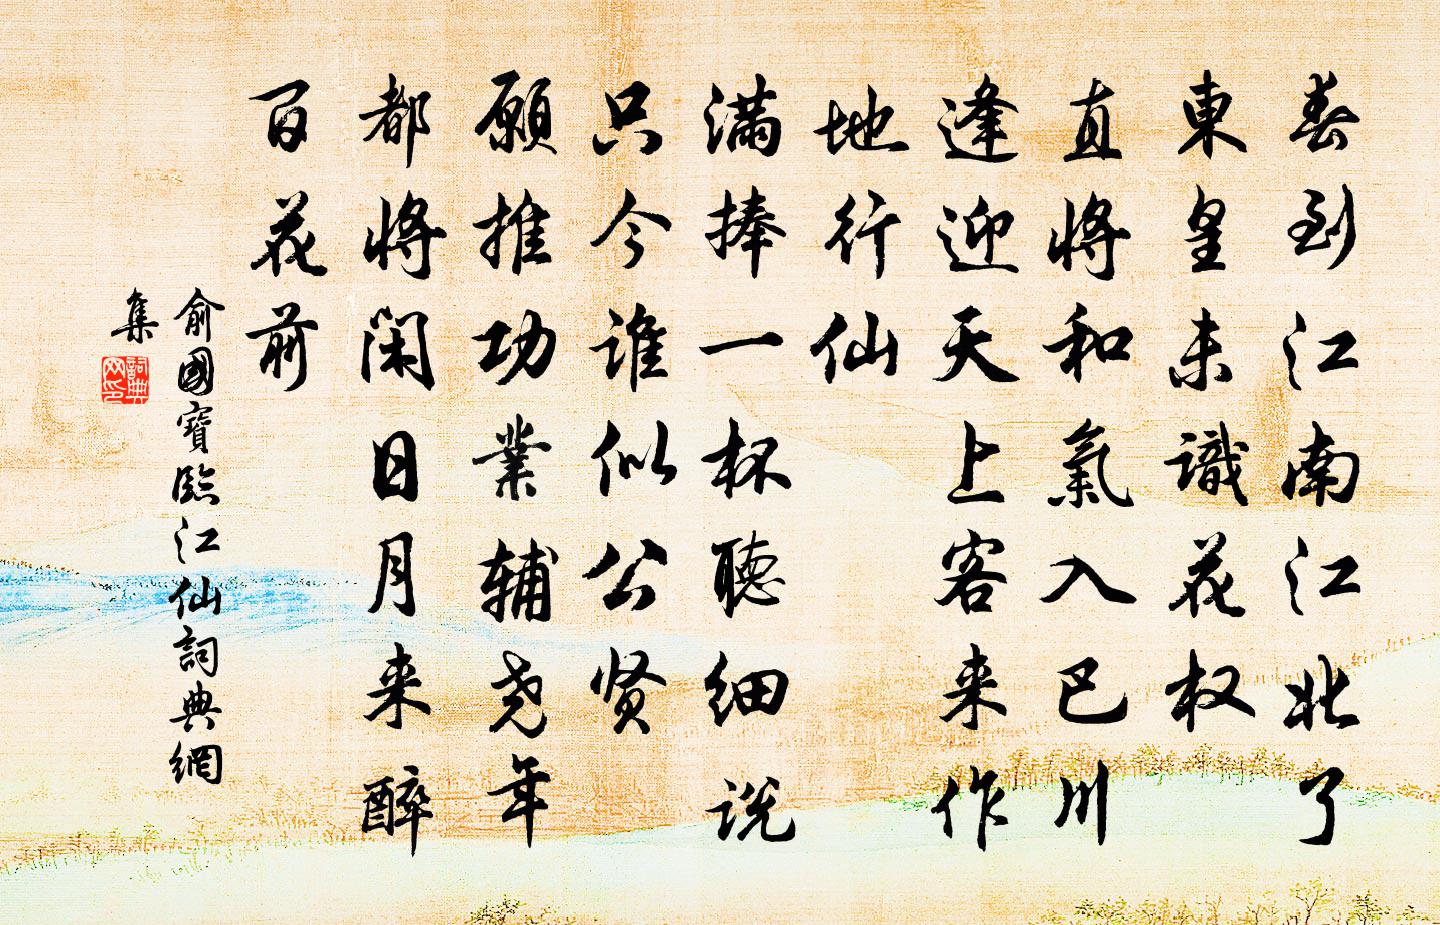 春到江南江北了
東皇未識花权
直將和氣入巴川
逢迎天上客来作
地行仙
满捧一杯聽細说
只今谁似公贤
願推功業辅尧年
都將閑日月来醉
百花前
俞國寶臨江仙詞典網
集
詞典網印